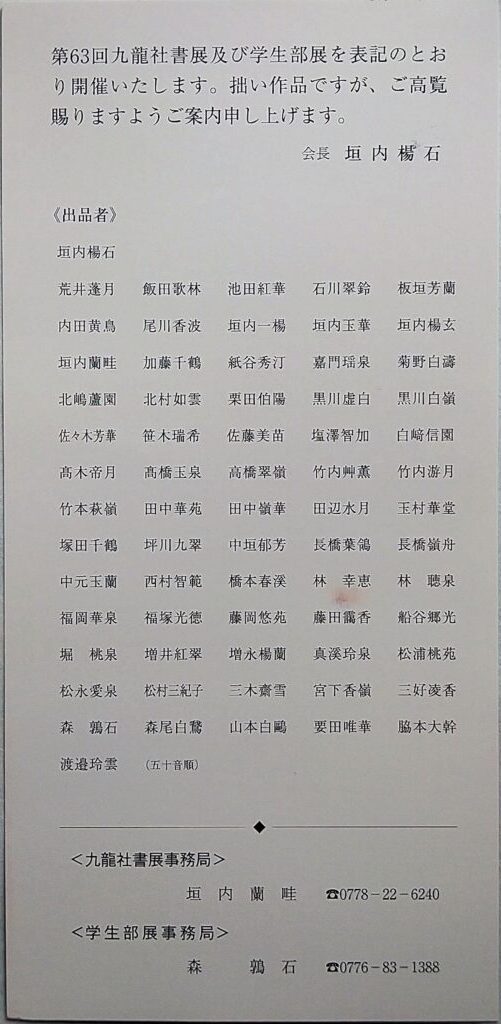 第63回九龍社書展及び学生部展を表記のとお
り開催いたします。拙い作品ですが、ご高覧
賜りますようご案内申し上げます。
会長 垣内楊石
《出品者》
垣内楊石
荒井蓬月 飯田歌林 池田紅華 石川翠鈴 板垣芳蘭
内田黄鳥 尾川香波 垣内一楊 垣内玉華 垣内楊玄
垣内蘭畦 加藤千鶴 紙谷秀汀 嘉門瑶泉 菊野白濤
北嶋蘆園 北村如雲 栗田伯陽 黒川虚白 黒川白嶺
佐々木芳華 笹木瑞希 佐藤美苗 塩澤智加 白﨑信園
髙木帝月 髙橋玉泉 高橋翠嶺 竹内艸薫 竹内游月
竹本萩嶺 田中華苑 田中嶺華 田辺水月 玉村華堂
塚田千鶴 坪川九翠 中垣郁芳 長橋葉鴒 長橋嶺舟
中元玉蘭 西村智範 橋本春溪 林 幸恵 林 聰泉
福岡華泉 福塚光徳 藤岡悠苑 藤田靄香 船谷郷光
堀 桃泉 増井紅翠 増永楊蘭 真溪玲泉 松浦桃苑
松永愛泉 松村三紀子 三木齋雪 宮下香嶺 三好凌香
森 鶉石 森尾白鷺 山本白鷗 要田唯華 脇本大幹
渡邉玲雲 (五十音順)
<九龍社書展事務局>
垣内蘭畦 ☎0778-22-6240
<学生部展事務局>
森 鶉石 ☎0776-83-1388